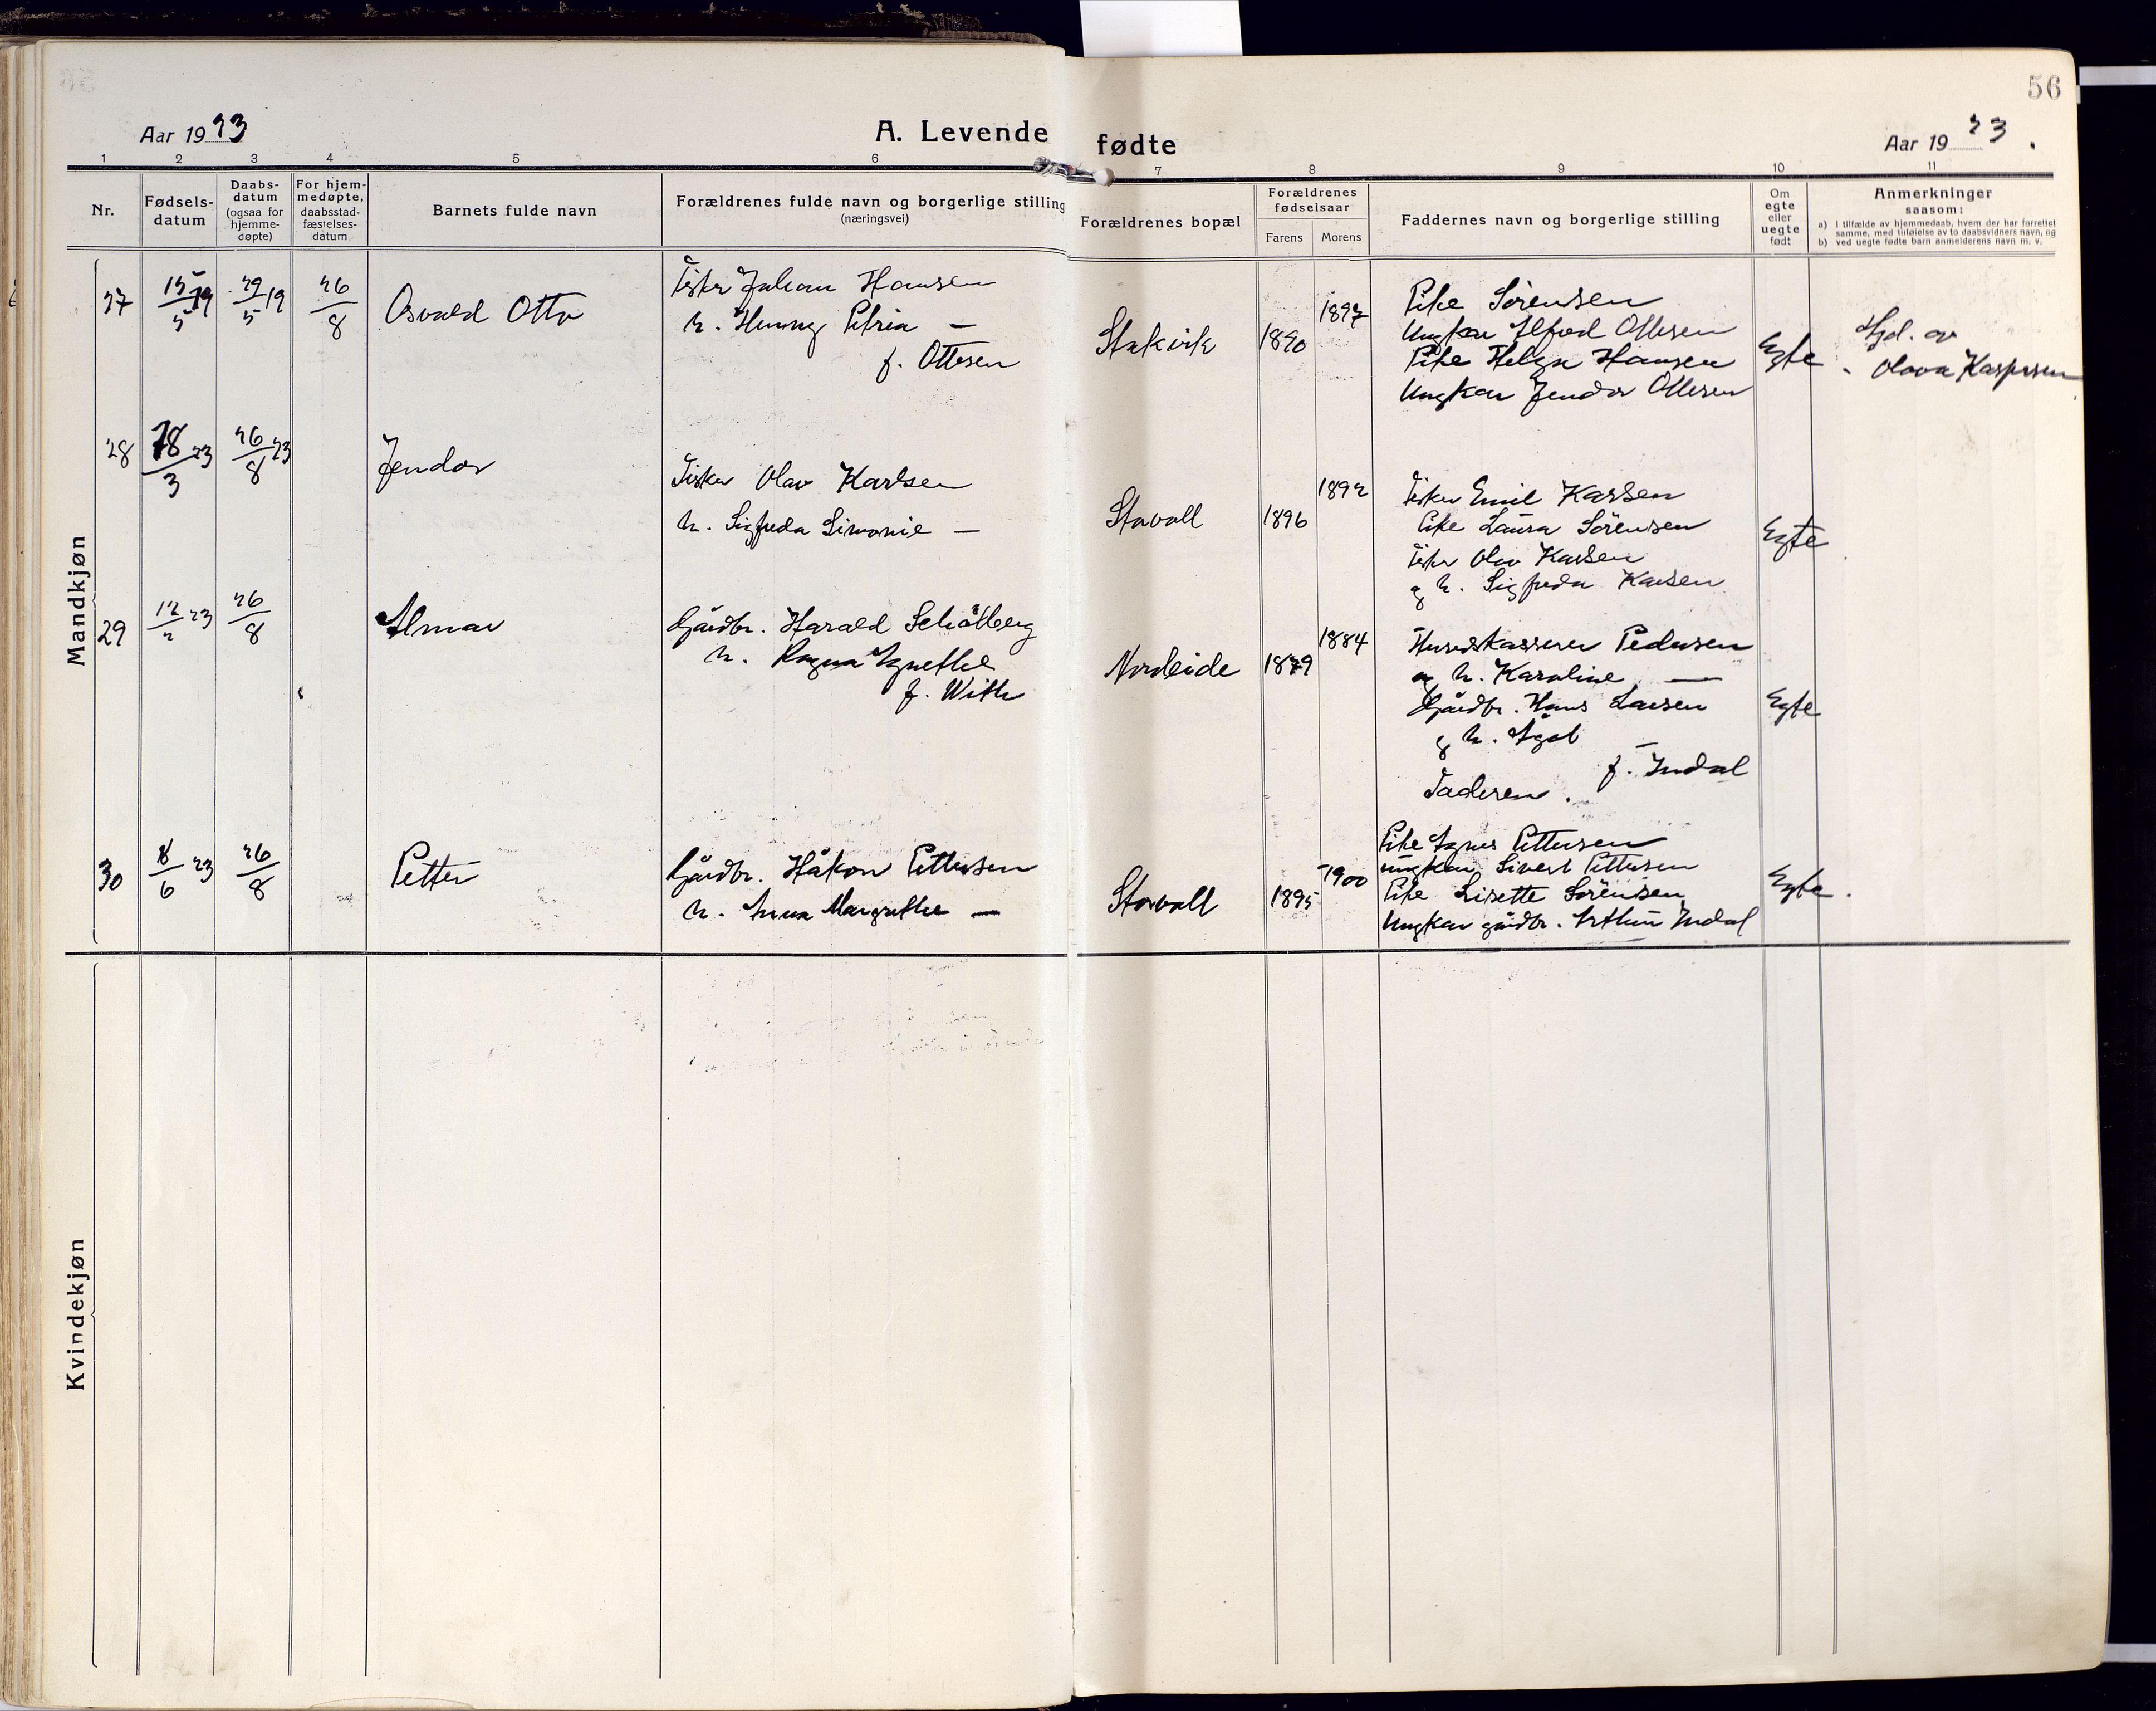 56
Aar 1923
A. Levende fødte
Aar 1923.
1 2 3 4 5 6 7 8 9 10 11
Nr.
Fødsels-
datum
Daabs-
datum
(ogsaa for
hjemme-
døpte)
For hjem-
medøpte,
daabsstad-
fæstelses-
datum
Barnets fulde navn
Forældrenes fulde navn og borgerlige stilling
(næringsvei)
Forældrenes bopæl
Forældrenes
fødselsaar
Farens
Morens
Faddernes navn og borgerlige stilling
Om
egte
eller
uegte
født
Anmerkninger
saasom:
a) i tilfælde av hjemmedaab, hvem der har forrettet
samme, med tilføielse av to daabsvidners navn, og
b) ved uegte fødte barn anmelderens navn m. v.
Mandkjøn
27
15/5 19
29/5 19
26/8
Osvald Otto
Fisker Johan Hansen
h. Henny Petria —
f. Ottesen
Stakvik
1890
1897
Pike Sörensen
Ungkar Alfred Ottesen
Pike Helga Hansen
Ungkar Jendor Ottesen
Egte
Hjd. av
Olava Kaspersen
28
18/3 23
26/8 23
Jendor
Fisker Olav Karlsen
h. Sigfreda Simonie —
Storvoll
1896
1892
Fisker Emil Karlsen
Pike Laura Sörensen
Fisker Olav Karlsen
g h. Sigfreda Karlsen
Egte
29
12/2 23
26/8
Almar
Gårdbr. Harald Schåtberg
h. Ragna Agnethe
f. With
Nordeide
1879
1884
Herredskasserer Pedersen
og h. Karoline —
Gårdbr. Hans Larsen
g h. Ågot —
f. Indal
Faderen.
Egte
30
8/6 23
26/8
Petter
Gårdbr. Håkon Pettersen
h. Anna Margrethe —
Storvoll
1895
1900
Pike Agnes Pettersen
ungkar Sivert Pettersen
Pike Lisette Sörensen
Ungkar gårdbr. Arthur Indal
Egte.
Kvindekjøn